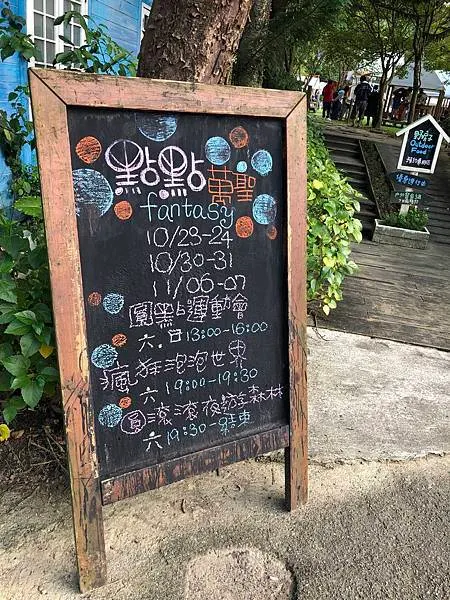 點點萬聖
fantasy
10/23-24
10/30-31
11/06-07
圓點運動會
六.日 13:00-16:00
瘋狂泡泡世界
六 19:00-19:30
圓滾滾夜訪森林
六 19:30-結束
野餐
Outdoor
Food